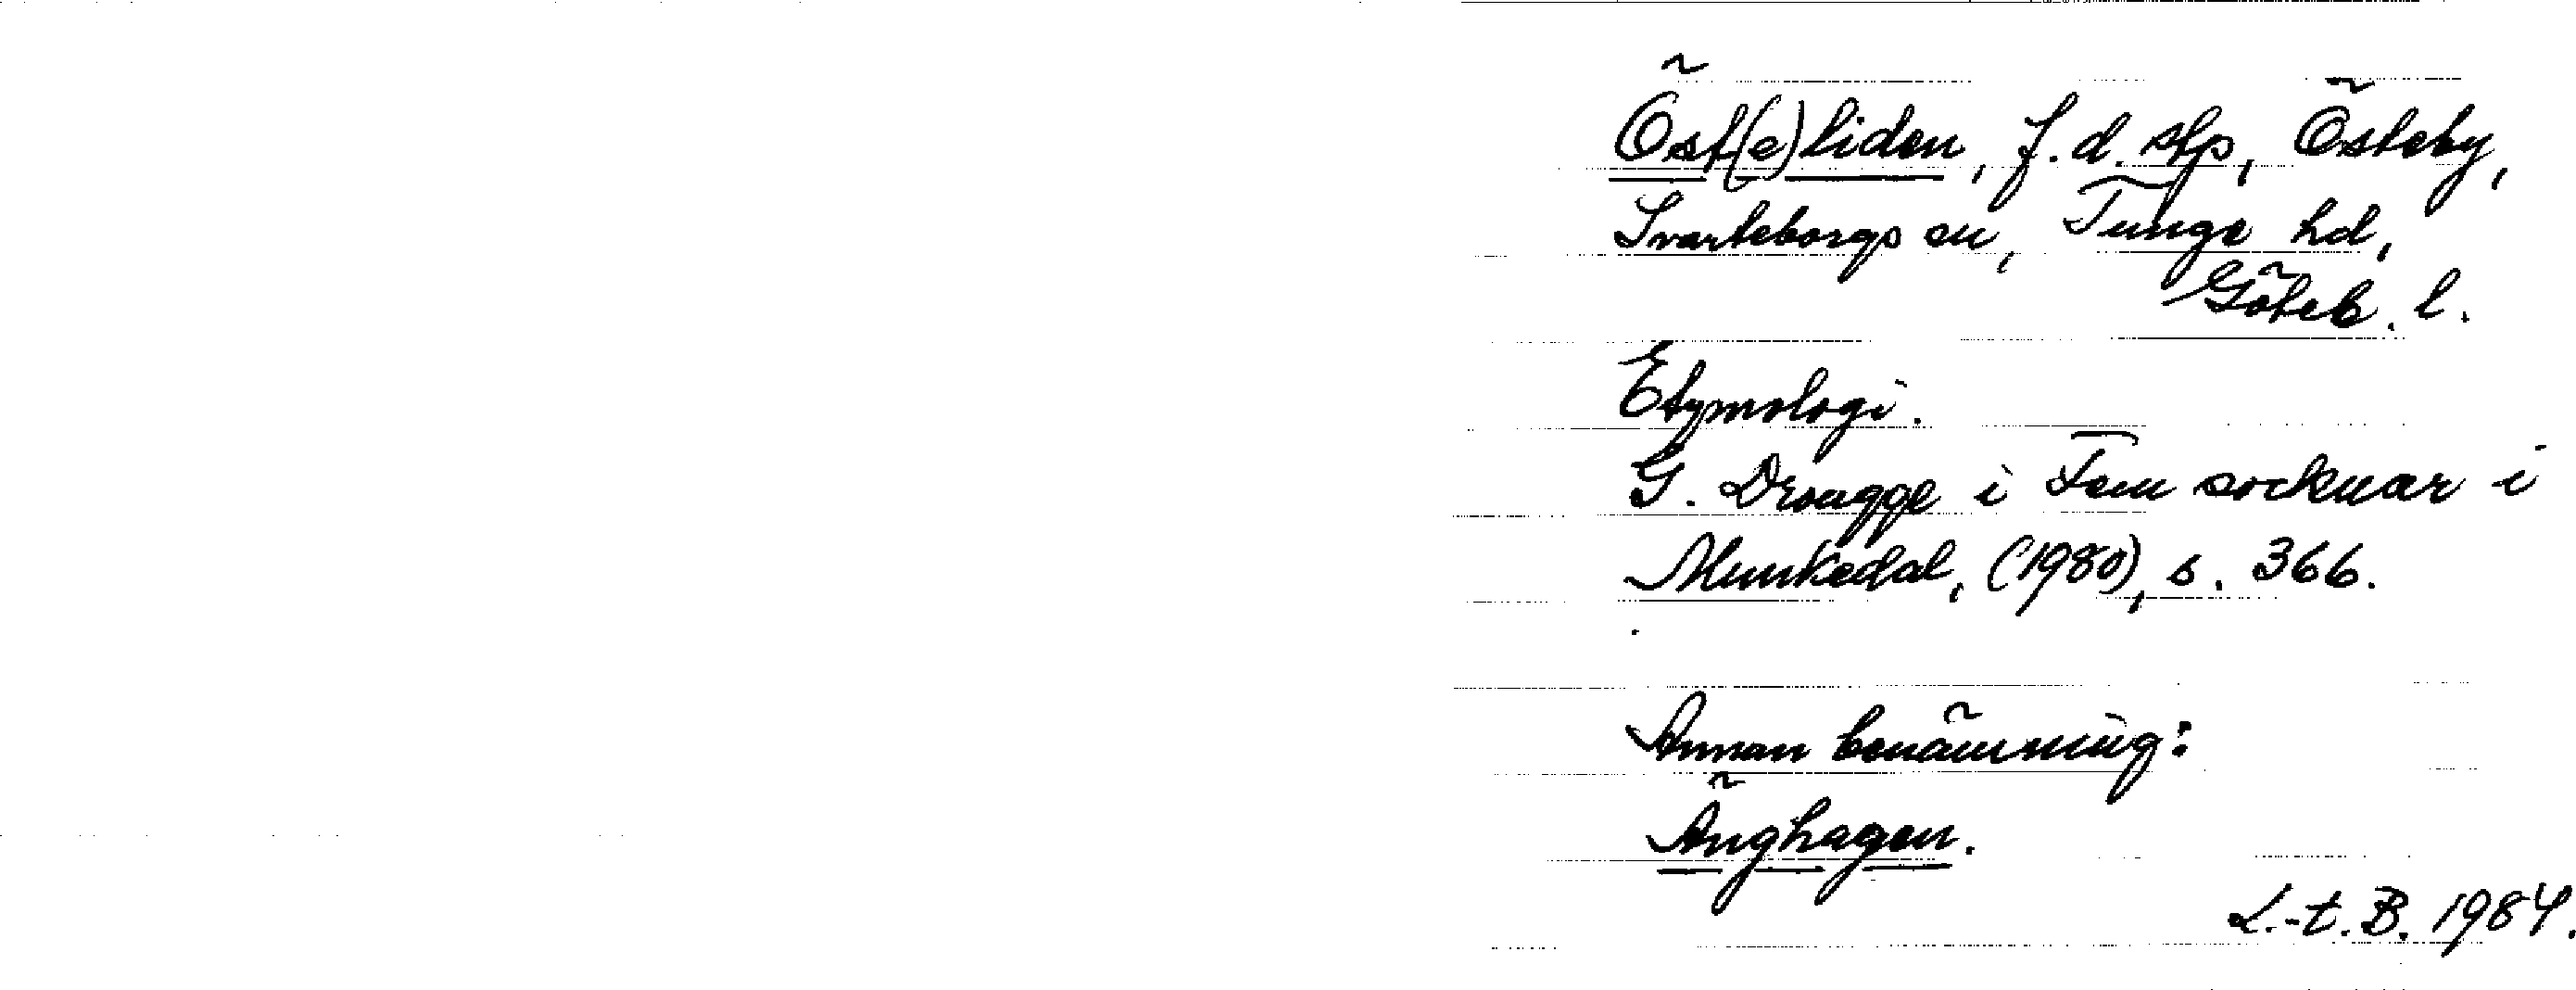 Öst(e)liden, f.d. stp, Östeby,
Svarteborgs sn, Tunge hd,
Göteb. l.
Etymologi.
G. Drougge i Fem socknar i
Munkedal, (1980), s. 366.
Annan benämning:
Änghagen.
L.-t. B. 1984.